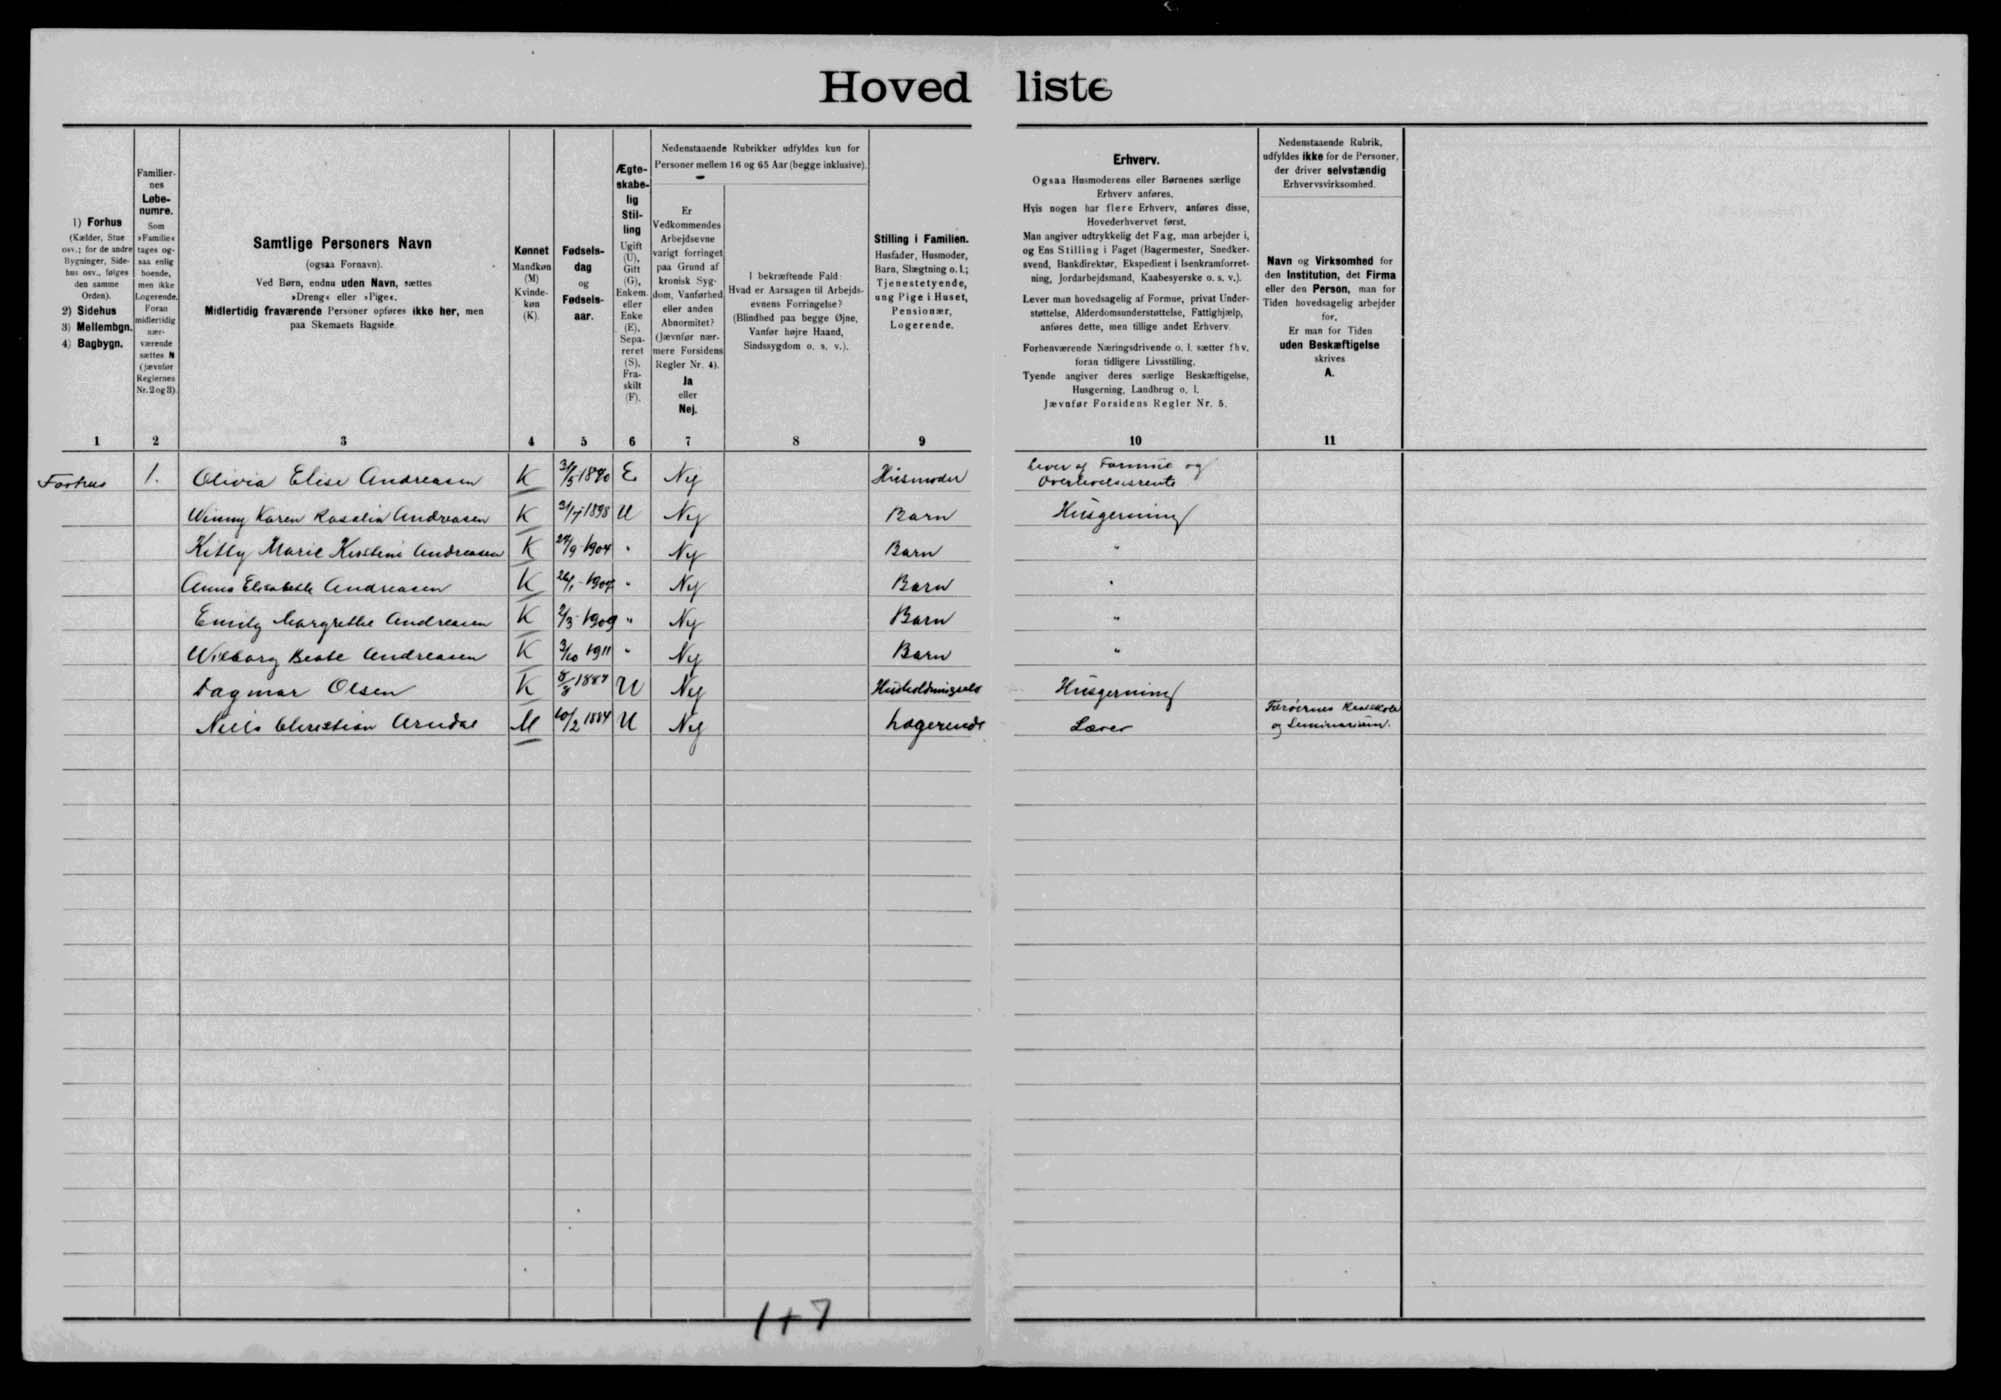 Hovedliste
1) Forhus
(Kælder, Stue
osv.; for de andre
Bygninger, Side-
hus osv., følges
den samme
Orden).
2) Sidehus
3) Mellembgn.
4) Bagbygn.
Familier-
nes
Løbe-
numre.
Som
»Familie«
tages og-
saa enlig
boende,
men ikke
Logerende.
Foran
midlertidig
nær-
værende
sættes N
(jævnfør
Reglernes
Nr. 2 og 3).
Samtlige Personers Navn
(ogsaa Fornavn).
Ved Børn, endnu uden Navn, sættes
»Dreng« eller »Pige«.
Midlertidig fraværende Personer opføres ikke her, men
paa Skemaets Bagside.
Kønnet
Mandkøn
(M)
Kvinde-
køn
(K).
Fødsels-
dag
og
Fødsels-
aar.
Ægte-
skabe-
lig
Stil-
ling
Ugift
(U),
Gift
(G),
Enkem.
eller
Enke
(E),
Sepa-
reret
(S),
Fra-
skilt
(F).
Nedenstaaende Rubrikker udfyldes kun for
Personer mellem 16 og 65 Aar (begge inklusive).
Er
Vedkommendes
Arbejdsevne
varigt forringet
paa Grund af
kronisk Syg-
dom, Vanførhed
eller anden
Abnormitet?
(Jævnfør nær-
mere Forsidens
Regler Nr. 4).
Ja
eller
Nej.
I bekræftende Fald:
Hvad er Aarsagen til Arbejds-
evnens Forringelse?
(Blindhed paa begge Øjne,
Vanfør højre Haand,
Sindssygdom o. s. v.).
Stilling i Familien.
Husfader, Husmoder,
Barn, Slægtning o. l.;
Tjenestetyende,
ung Pige i Huset,
Pensionær,
Logerende.
Erhverv.
Ogsaa Husmoderens eller Børnenes særlige
Erhverv anføres.
Hvis nogen har flere Erhverv, anføres disse,
Hovederhvervet først.
Man angiver udtrykkelig det Fag, man arbejder i,
og Ens Stilling i Faget (Bagermester, Snedker-
svend, Bankdirektør, Ekspedient i Isenkramforret-
ning, Jordarbejdsmand, Kaabesyerske o. s. v.).
Lever man hovedsagelig af Formue, privat Under-
støttelse, Alderdomsunderstøttelse, Fattighjælp,
anføres dette, men tillige andet Erhverv.
Forhenværende Næringsdrivende o. l. sætter fhv.
foran tidligere Livsstilling.
Tyende angiver deres særlige Beskæftigelse,
Husgerning, Landbrug o. l.
Jævnfør Forsidens Regler Nr. 5.
Nedenstaaende Rubrik,
udfyldes ikke for de Personer,
der driver selvstændig
Erhvervsvirksomhed.
Navn og Virksomhed for
den Institution, det Firma
eller den Person, man for
Tiden hovedsagelig arbejder
for.
Er man for Tiden
uden Beskæftigelse
skrives
A.
1 2 3 4 5 6 7 8 9 10 11
Forhus 1. Olivia Elise Andreasen K 31/5 1870 E Nej Husmoder Lever af Formue og Overlevelsesrente
Winny Karen Rosalia Andreasen K 31/7 1898 U Nej Barn Husgerning
Kitty Marie Kirstine Andreasen K 29/9 1904 " Nej Barn "
Anna Elisabeth Andreasen K 26/1 1907 " Nej Barn "
Emily Margrethe Andreasen K 2/3 1909 " Nej Barn "
Wilborg Beate Andreasen K 3/10 1911 " Nej Barn "
Dagmar Olsen K 1887 U Nej Husgerning
Niels Christian Arndal M 10/2 1884 U Nej Logerende Lærer Færøernes Realskole og Seminarium.
1+7